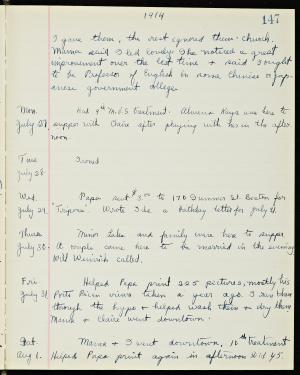 1914
147
I gave them, the rest ignored them. Church.
Mama said I led lovely. She noticed a great
improvement over the last time & said I ought
to be Professor of English in some Chinese or Jap-
anese government college.
Mon. Had 9th M.O.S treatment. Almena Kaye was here to
July 27 supper with Claire after playing with her in the after
noon.
Tues Ironed
July 28
Wed. Papa sent $3.00 to 170 Summer St. Boston for
July 29. . Wrote a birthday letter for July 31.
Thurs Miner Luke and family were here to supper.
July 30. A couple came here to be married in the evening
Will called.
Fri Helped Papa print 225 pictures, mostly his
July 31 Porto Rican views taken a year ago. I ran them
through the hypo & helped wash them & dry them
Mama & Claire went downtown.
Sat. Mama & I went downtown, 10th treatment
Aug 1. Helped Papa print again in afternoon Did 45.